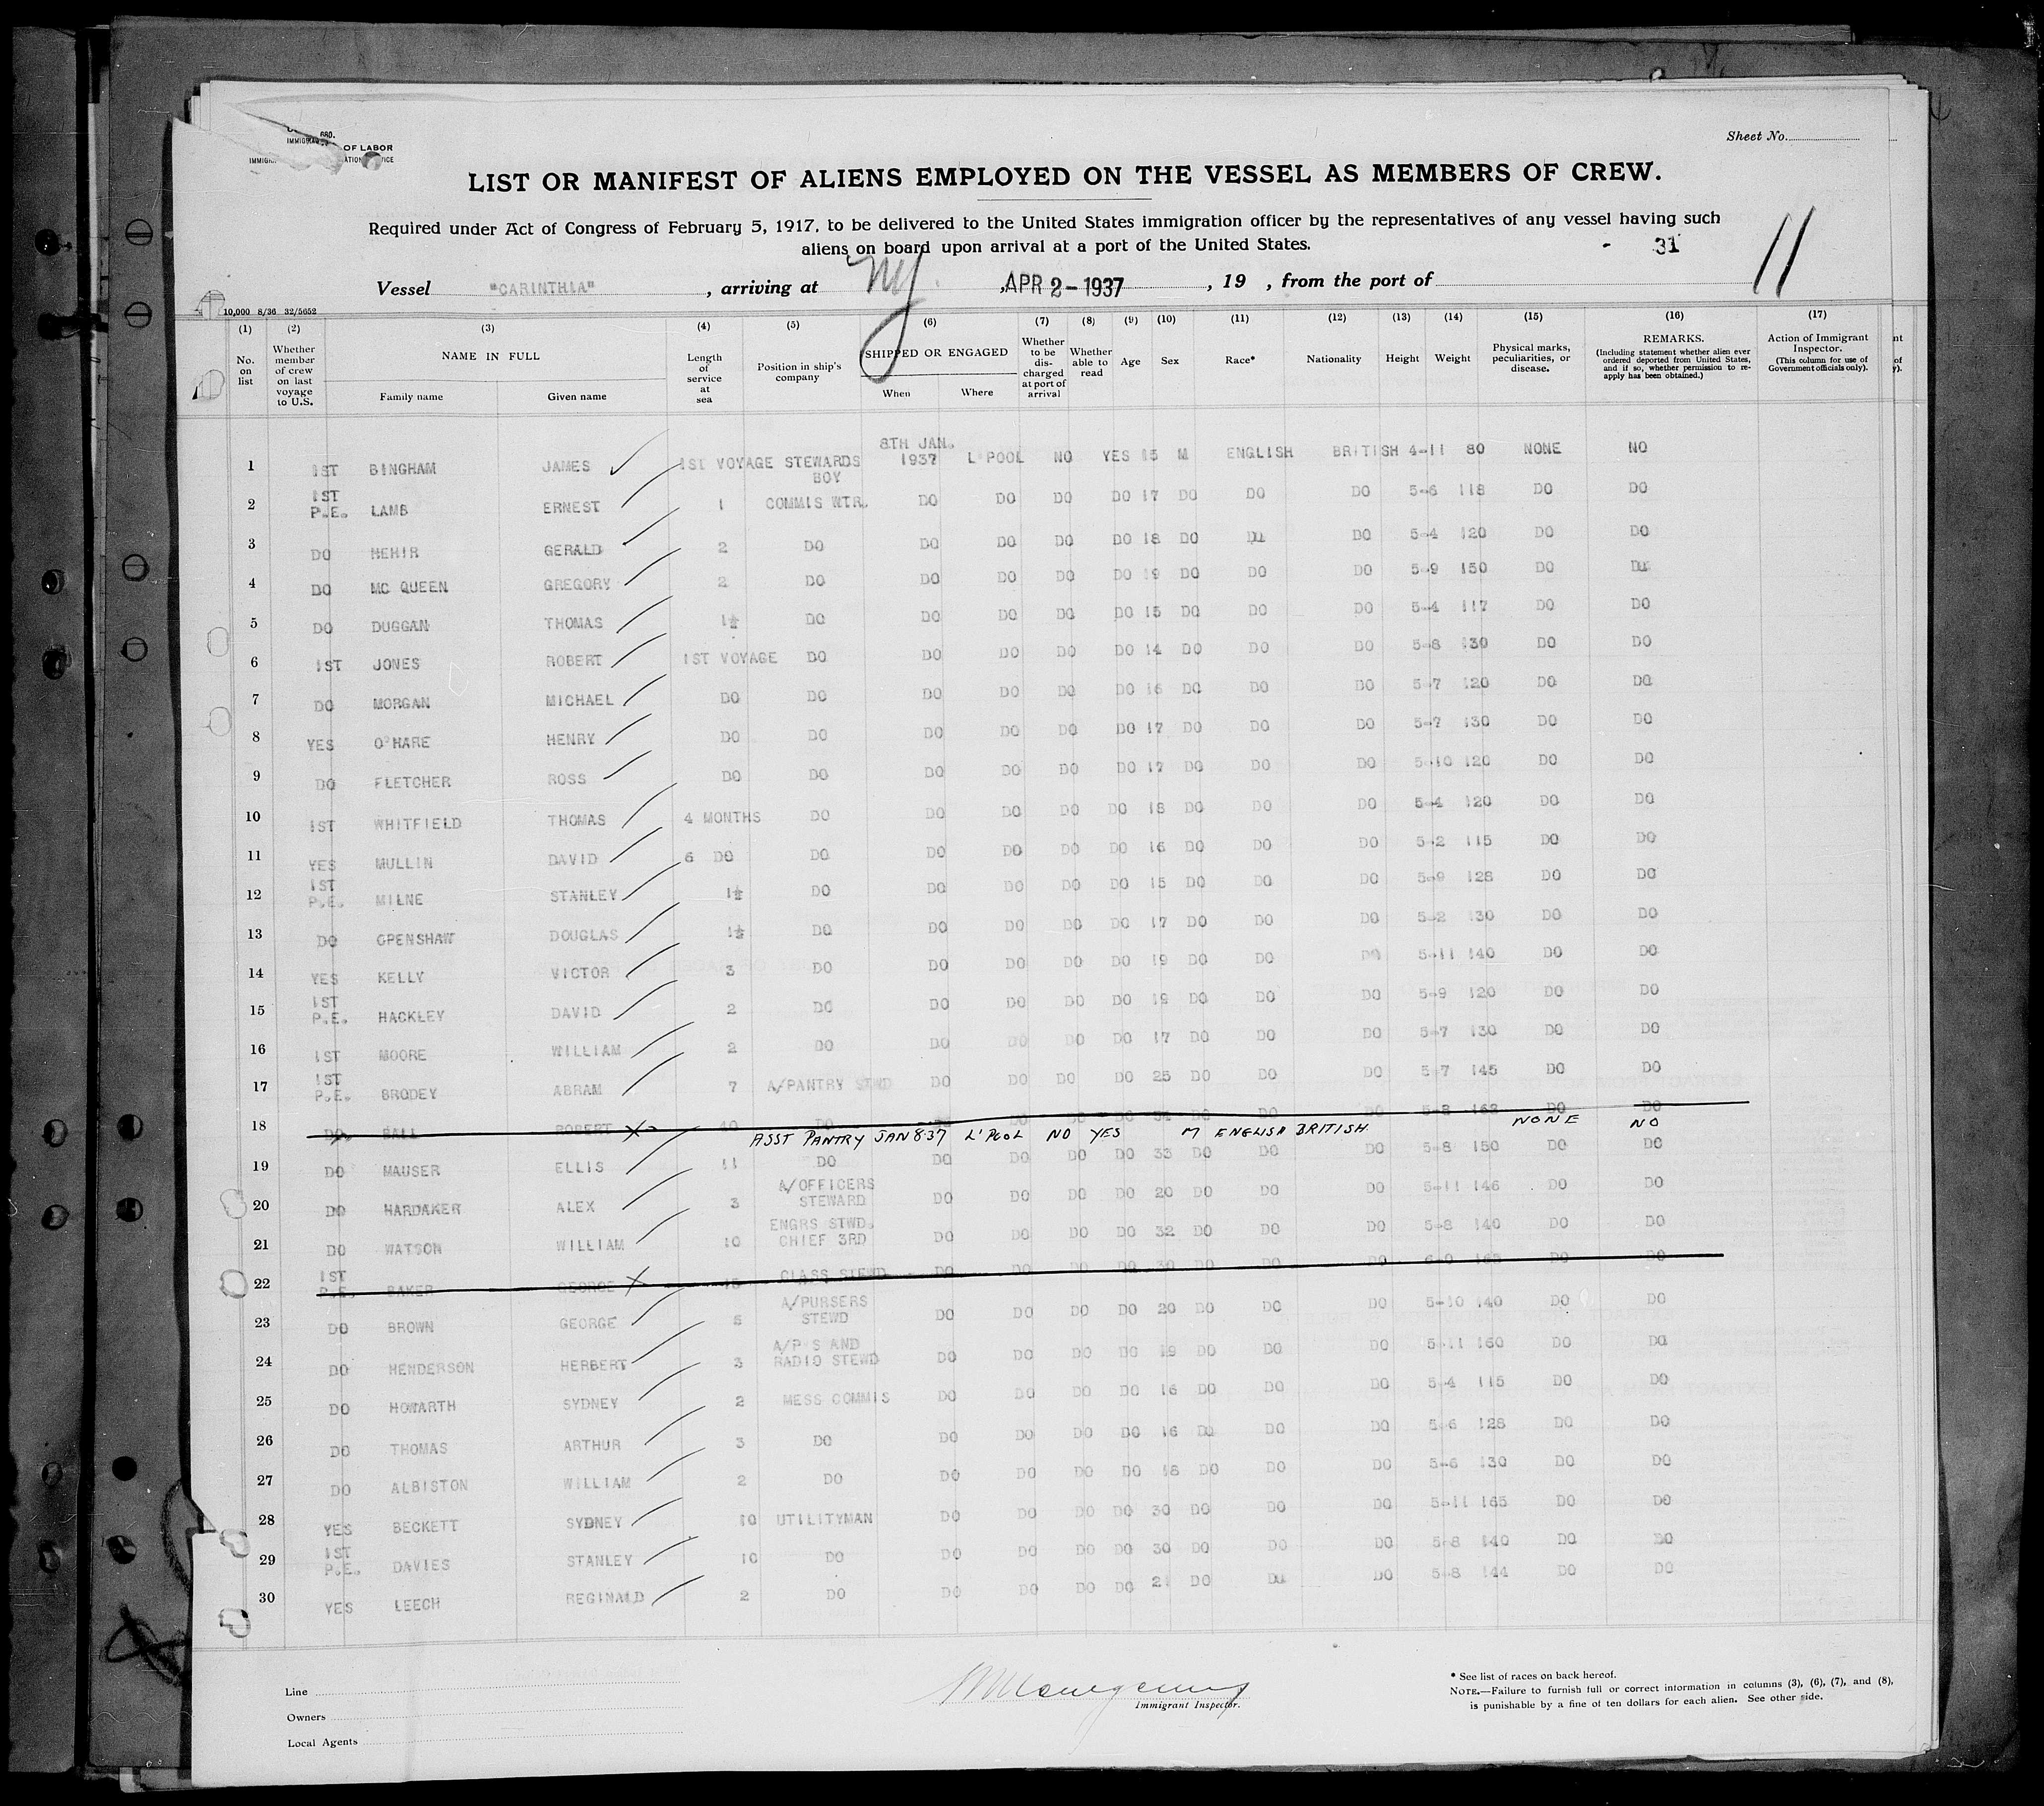 680.
OF LABOR
Sheet No.
LIST OR MANIFEST OF ALIENS EMPLOYED ON THE VESSEL AS MEMBERS OF CREW.
Required under Act of Congress of February 5, 1917, to be delivered to the United States immigration officer by the representatives of any vessel having such
aliens on board upon arrival at a port of the United States.
- 31
11
Vessel "CARINTHIA" , arriving at NY , APR 2-1937 , 19 , from the port of
10,000 8/36 32/5652
(1) (2) (3) (4) (5) (6) (7) (8) (9) (10) (11) (12) (13) (14) (15) (16) (17)
No. on list
Whether member of crew on last voyage to U.S.
NAME IN FULL
Family name Given name
Length of service at sea
Position in ship's company
SHIPPED OR ENGAGED
When Where
Whether to be discharged at port of arrival
Whether able to read
Age Sex Race* Nationality Height Weight
Physical marks, peculiarities, or disease.
REMARKS.
(Including statement whether alien ever ordered deported from United States, and if so, whether permission to reapply has been obtained.)
Action of Immigrant Inspector.
(This column for use of Government officials only).
1 1ST BINGHAM JAMES 1ST VOYAGE STEWARDS BOY 8TH JAN. 1937 L'POOL NO YES 15 M ENGLISH BRITISH 4-11 80 NONE NO
2 1ST P.E. LAMB ERNEST 1 COMMIS WTR. DO DO DO DO 17 DO DO DO 5-6 118 DO DO
3 DO NEHIR GERALD 2 DO DO DO DO DO 18 DO DO DO 5-4 120 DO DO
4 DO MC QUEEN GREGORY 2 DO DO DO DO DO 19 DO DO DO 5-9 150 DO DO
5 DO DUGGAN THOMAS 1½ DO DO DO DO DO 15 DO DO DO 5-4 117 DO DO
6 1ST JONES ROBERT 1ST VOYAGE DO DO DO DO DO 14 DO DO DO 5-8 130 DO DO
7 DO MORGAN MICHAEL DO DO DO DO DO DO 16 DO DO DO 5-7 120 DO DO
8 YES O'HARE HENRY DO DO DO DO DO DO 17 DO DO DO 5-7 130 DO DO
9 DO FLETCHER ROSS DO DO DO DO DO DO 17 DO DO DO 5-10 120 DO DO
10 1ST WHITFIELD THOMAS 4 MONTHS DO DO DO DO DO 18 DO DO DO 5-4 120 DO DO
11 YES MULLIN DAVID 6 DO DO DO DO DO DO 16 DO DO DO 5-2 115 DO DO
12 1ST P.E. MILNE STANLEY 1½ DO DO DO DO DO 15 DO DO DO 5-9 128 DO DO
13 DO OPENSHAW DOUGLAS 1½ DO DO DO DO DO 17 DO DO DO 5-2 130 DO DO
14 YES KELLY VICTOR 3 DO DO DO DO DO 19 DO DO DO 5-11 140 DO DO
15 1ST P.E. HACKLEY DAVID 2 DO DO DO DO DO 19 DO DO DO 5-9 120 DO DO
16 1ST MOORE WILLIAM 2 DO DO DO DO DO 17 DO DO DO 5-7 130 DO DO
17 1ST P.E. BRODEY ABRAM 7 A/PANTRY STWD DO DO DO DO 25 DO DO DO 5-7 145 DO DO
18 DO BALL ROBERT X 10 DO DO DO DO DO DO DO DO 5-8 DO DO
ASST PANTRY JAN 8-37 L'POOL NO YES M ENGLISH BRITISH. NONE NO
19 DO MAUSER ELLIS 11 DO DO DO DO DO 33 DO DO DO 5-8 150 DO DO
20 DO HARDAKER ALEX 3 A/OFFICERS STEWARD DO DO DO DO 20 DO DO DO 5-11 146 DO DO
21 DO WATSON WILLIAM 10 ENGRS STWD. DO DO DO DO 32 DO DO DO 5-8 140 DO DO
22 1ST P.E. BAKER GEORGE X 15 CHIEF 3RD CLASS STEWD DO DO DO DO 30 DO DO DO 6-0 DO DO
23 DO BROWN GEORGE 5 A/PURSERS STEWD DO DO DO DO 20 DO DO DO 5-10 140 DO DO
24 DO HENDERSON HERBERT 3 A/P'S AND RADIO STEWD DO DO DO DO 19 DO DO DO 5-11 160 DO DO
25 DO HOWARTH SYDNEY 2 MESS COMMIS DO DO DO DO 16 DO DO DO 5-4 115 DO DO
26 DO THOMAS ARTHUR 3 DO DO DO DO DO 16 DO DO DO 5-6 128 DO DO
27 DO ALBISTON WILLIAM 2 DO DO DO DO DO 18 DO DO DO 5-6 130 DO DO
28 YES BECKETT SYDNEY 10 UTILITYMAN DO DO DO DO 30 DO DO DO 5-11 165 DO DO
29 1ST P.E. DAVIES STANLEY 10 DO DO DO DO DO 30 DO DO DO 5-8 140 DO DO
30 YES LEECH REGINALD 2 DO DO DO DO DO 21 DO DO DO 5-8 144 DO DO
Line
Owners
Local Agents
Immigrant Inspector.
* See list of races on back hereof.
NOTE.—Failure to furnish full or correct information in columns (3), (6), (7), and (8),
is punishable by a fine of ten dollars for each alien. See other side.